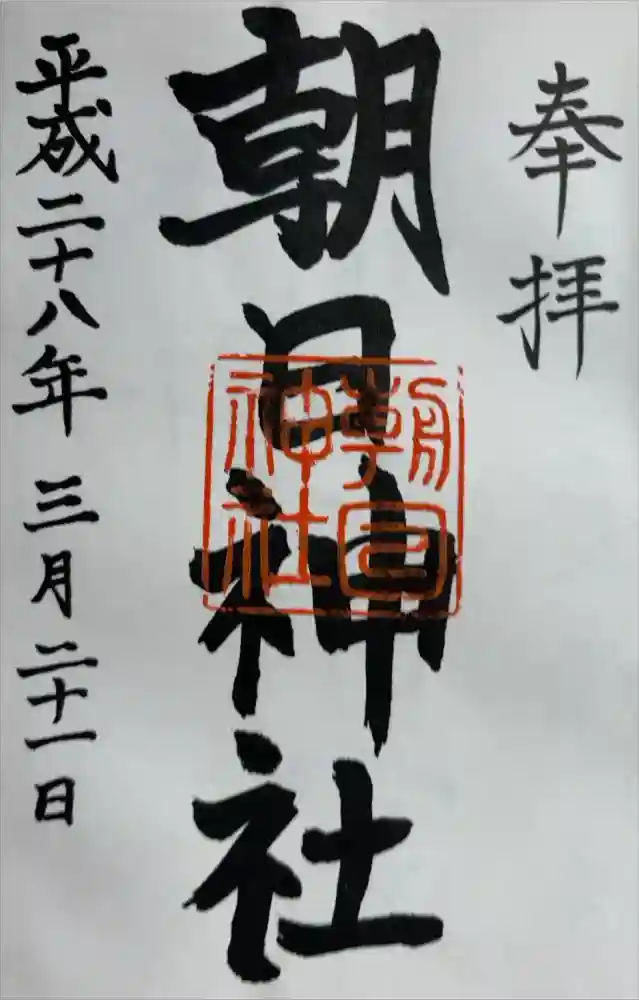 奉拝
朝日神社
朝日神社
平成二十八年 三月 二十一日